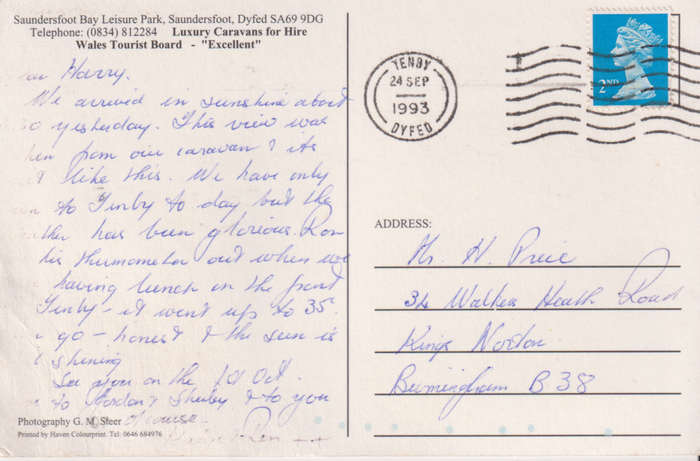 Saundersfoot Bay Leisure Park, Saundersfoot, Dyfed SA69 9DG
Telephone: (0834) 812284 Luxury Caravans for Hire
Wales Tourist Board - "Excellent"
Harry.
We arrived in sunshine about
yesterday. This view was
from our caravan & its
like this. We have only
to Tenby to day but the
has been glorious Ron
his thermometer out when we
having lunch on the front
Tenby - it went up to 35.
go - honest & the sun is
shining
See you on the 1st Oct.
to Gordon & Shirley & to you
Photography G. M. Sleer
Printed by Haven Colourprint. Tel: 0646 684976
TENBY
24 SEP
1993
DYFED
2ND
ADDRESS:
Mr. H. Price
34 Walkers Heath Road
Kings Norton
Birmingham B38